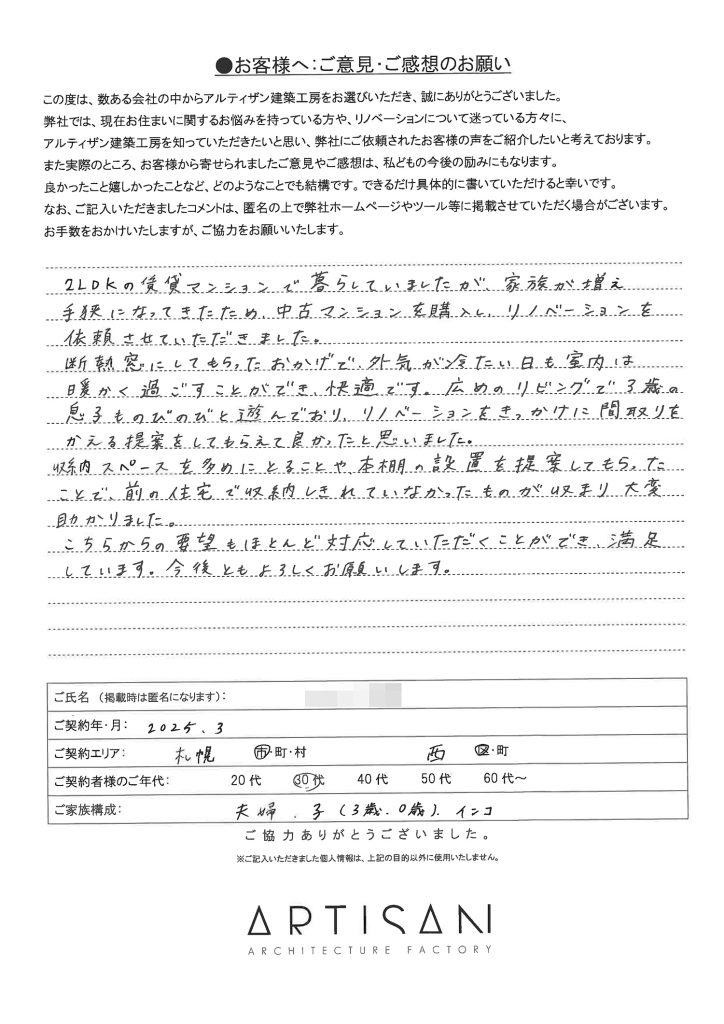 ●お客様へ:ご意見・ご感想のお願い
この度は、数ある会社の中からアルティザン建築工房をお選びいただき、誠にありがとうございました。
弊社では、現在お住まいに関するお悩みを持っている方や、リノベーションについて迷っている方々に、
アルティザン建築工房を知っていただきたいと思い、弊社にご依頼されたお客様の声をご紹介したいと考えております。
また実際のところ、お客様から寄せられましたご意見やご感想は、私どもの今後の励みにもなります。
良かったこと嬉しかったことなど、どのようなことでも結構です。できるだけ具体的に書いていただけると幸いです。
なお、ご記入いただきましたコメントは、匿名の上で弊社ホームページやツール等に掲載させていただく場合がございます。
お手数をおかけいたしますが、ご協力をお願いいたします。
2LDKの賃貸マンションで暮らしていましたが、家族が増え
手狭になってきたため、中古マンションを購入し、リノベーションを
依頼させていただきました。
断熱窓にしてもらったおかげで、外気が冷たい日も室内は
暖かく過ごすことができ、快適です。広めのリビングで3歳の
息子ものびのびと遊んでおり、リノベーションをきっかけに間取りを
かえる提案をしてもらえて良かったと思いました。
収納スペースを多めにとることや本棚の設置を提案してもらった
ことで、前の住宅で収納しきれていなかったものが収まり大変
助かりました。
こちらからの要望もほとんど対応していただくことができ、満足
しています。今後ともよろしくお願いします。
ご氏名 (掲載時は匿名になります):
ご契約年・月: 2025.3
ご契約エリア: 札幌 市・町・村 西 区・町
ご契約者様のご年代: 20代 30代 40代 50代 60代~
ご家族構成: 夫婦、子(3歳、0歳)、インコ
ご協力ありがとうございました。
※ご記入いただきました個人情報は、上記の目的以外に使用いたしません。
ARTISAN
ARCHITECTURE FACTORY